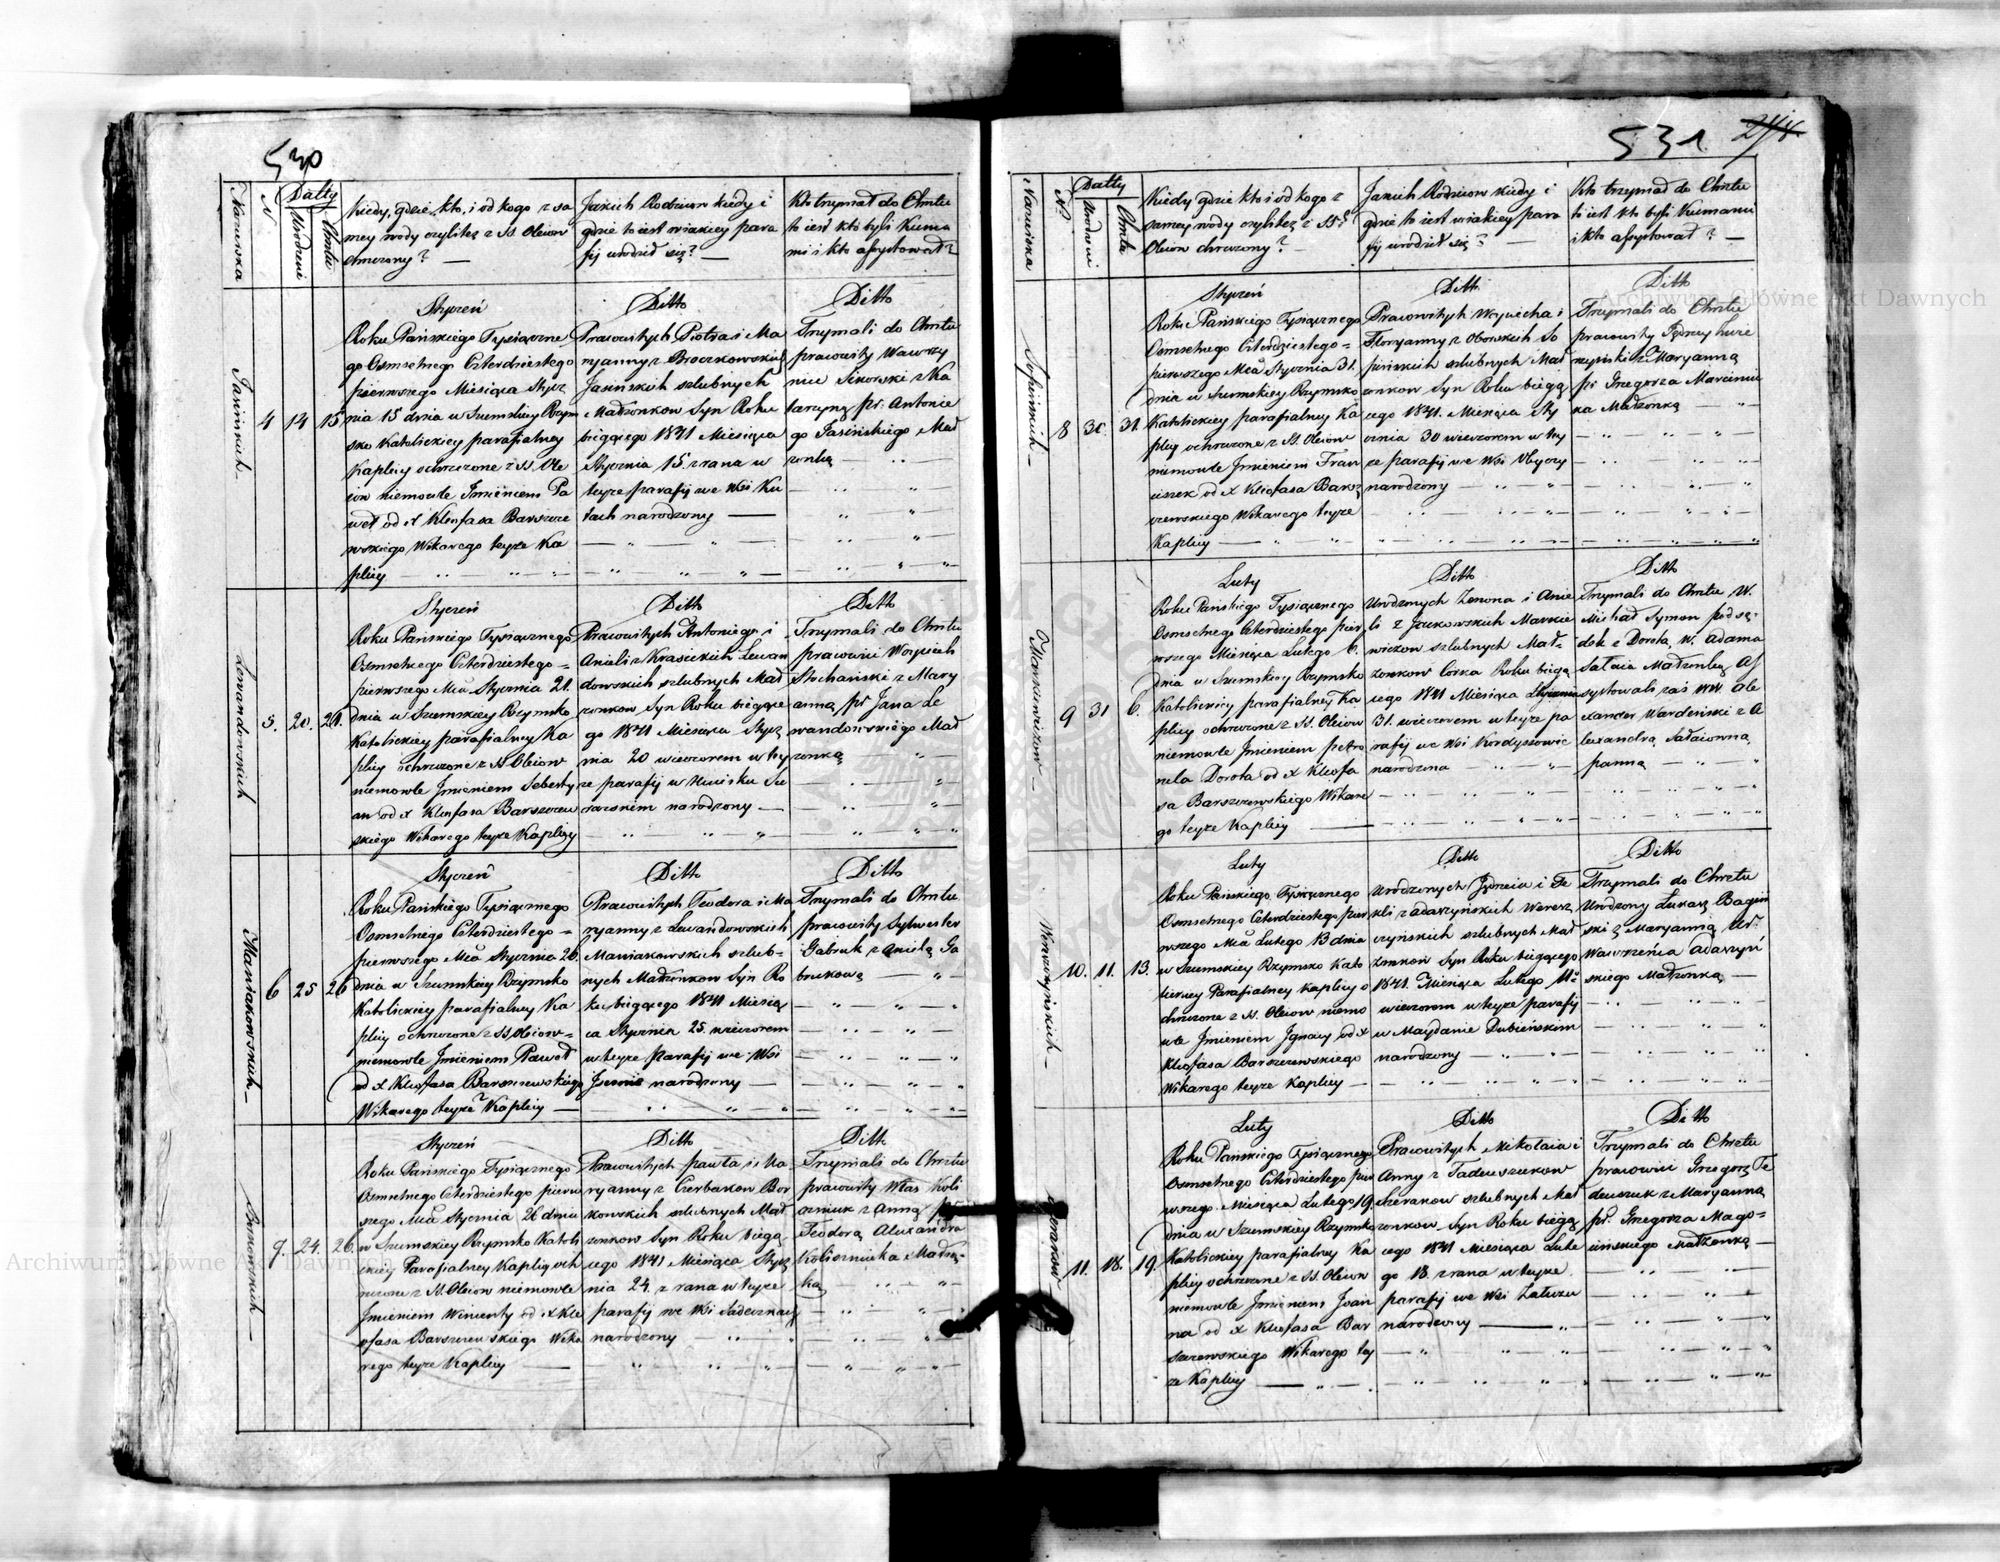 530
Nazwiska
N.
Datty
Urodzeni
Chrztu
Kiedy, gdzie, kto, i od kogo z sa
mey wody czyliteż z SS. Oleiow
chrzczony? —
Jakich Rodzicow kiedy i
gdzie to iest w iakiey para
fij urodził się? —
Kto trzymał do Chrztu
to iest kto byli Kuma
mi i kto asystował?
Jasinskich —
4
14
15
Styczeń
Roku Pańskiego Tysiączne
go Osmsetnego Czterdziestego
pierwszego Miesiąca Stycz
nia 15 dnia w Szumskiey Rzym
sko Katolickiey parafialney
Kaplicy ochrzczone z SS. Ole
iow niemowle Imieniem Pa
weł od X Kleofasa Barszcze
wskiego Wikarego teyże Ka
plicy
Ditto
Pracowitych Piotra i Ma
ryanny z Broczkowskich
Jasinskich szlubnych
Małżonkow Syn Roku
bieżącego 1841 Miesiąca
Stycznia 15 zrana w
teyże parafij we Wsi Ku
tach narodzony —
Ditto
Trzymali do Chrztu
pracowity Wawrzy
niec Sikorski z Ka
tarzyną pr. Antonie
go Jasińskiego Mał
żonką —
Lewandowskich
5.
20.
21.
Styczeń
Roku Pańskiego Tysiącznego
Osmsetnego Czterdziestego =
pierwszego Mca Stycznia 21.
dnia w Szumskiey Rzymsko
Katolickiey parafialney Ka
plicy ochrzczone z SS. Oleiow
niemowle Imieniem Sebesty
an od X Kleofasa Barszczew
skiego Wikarego teyże Kaplicy
Ditto
Pracowitych Antoniego i
Anieli z Krasickich Lewan
dowskich szlubnych Mał
żonkow Syn Roku bieżące
go 1841 Miesiąca Stycz
nia 20 wieczorem w tey
że parafij w Humisku Su
narodzony —
Ditto
Trzymali do Chrztu
pracowici Woyciech
Stochański z Mary
anną pr Jana Le
wandowskiego Mał
żonką
Maniakowskich —
6
25
26
Styczeń
Roku Pańskiego Tysiącznego
Osmsetnego Czterdziestego =
pierwszego Mca Stycznia 26.
dnia w Szumskiey Rzymsko
Katolickiey parafialney Ka
plicy ochrzczone z SS Oleiow =
niemowle Imieniem Paweł
od X Kleofasa Barszczewskiego
Wikarego teyże Kaplicy —
Ditto
Pracowitych Teodora i Ma
ryanny z Lewandowskich
Maniakowskich szlub=
nych Małżonkow Syn Ro
ku bieżącego 1841 Miesią
ca Stycznia 25. wieczorem
w teyże parafij we Wsi
narodzony —
Ditto
Trzymali do Chrztu
pracowity Sylwester
Gabruk z Anielą Ga
brukową
Borkowskich —
7.
24.
26.
Styczeń
Roku Pańskiego Tysiącznego
Osmsetnego Czterdziestego pierw
szego Mca Stycznia 26 dnia
w Szumskiey Rzymsko Katoli
ckiey Parafialney Kaplicy och
rzczone z SS. Oleiow niemowle
Imieniem Wincenty od X Kle
ofasa Barszczewskiego Wika
rego teyże Kaplicy —
Ditto
Pracowitych Pawła i Ma
ryanny z Czerbakow Bor
kowskich szlubnych Mał
żonkow Syn Roku bieżą
cego 1841 Miesiąca Stycz
nia 24. z rana w teyże
parafij we Wsi
narodzony
Ditto
Trzymali do Chrztu
pracowity Własz Koli
szniuk z Anną pr
Teodorą Alexandra
Koliszniuka Małżą
ką
531
Nazwiska
N.
Datty
Urodzeni
Chrztu
Kiedy gdzie kto i od kogo z
samey wody czyliteż z SSch
Oleiow chrzczony? —
Jakich Rodzicow kiedy i
gdzie to iest w iakiey para
fij urodził się? —
Kto trzymał do Chrztu
to iest kto byli Kumami
i kto asystował? —
Łopinskich —
8
30.
31.
Styczeń
Roku Pańskiego Tysiącznego
Osmsetnego Czterdziestego =
pierwszego Mca Stycznia 31.
dnia w Szumskiey Rzymsko
Katolickiey parafialney Ka
plicy ochrzczone z SS. Oleiow
niemowle Imieniem Fran
ciszek od X Kleofasa Barsz
czewskiego Wikarego teyże
Kaplicy —
Ditto
Pracowitych Woyciecha i
Floryanny z Obońskich Ło
pińskich szlubnych Mał
żonkow Syn Roku bieżą
cego 1841. Miesiąca Sty
cznia 30 wieczorem w tey
że parafij we Wsi Obycży
narodzony
Ditto
Trzymali do Chrztu
pracowity Jędrzey
z Maryanną
pr Grzegorza Marciniu
ka Małżonką —
Markiewiczow —
9
31
6.
Luty
Roku Pańskiego Tysiącznego
Osmsetnego Czterdziestego pier
wszego Miesiąca Lutego 6.
dnia w Szumskiey Rzymsko
Katolickiey parafialney Ka
plicy ochrzczone z SS. Oleiow
niemowle Imieniem Petro
nela Dorota od X Kleofa
sa Barszczewskiego Wikare
go teyże Kaplicy —
Ditto
Urodzonych Zenona i Anie
li z Markie
wiczow szlubnych Mał=
żonkow Corka Roku bieżą
cego 1841 Miesiąca Stycznia
31. wieczorem w teyże pa
rafij we Wsi Kordyszowie
narodzona
Ditto
Trzymali do Chrztu W.
Michał Symon podsę=
dek z Dorotą W. Adama
Małżonką As
systowali zaś WW. Ale
xander Wardeński z A
lexandrą
panną
Wereszczyńskich —
10.
11.
13.
Luty
Roku Pańskiego Tysiącznego
Osmsetnego Czterdziestego pier
wszego Mca Lutego 13 dnia
w Szumskiey Rzymsko Kato
lickiey Parafialney Kaplicy o
chrzczone z SS. Oleiow niemo
wle Imieniem Ignacy od X
Kleofasa Barszczewskiego
Wikarego teyże Kaplicy —
Ditto
Urodzonych Jędrzeia i Te
kli z Adarzyńskich Weresz
czyńskich szlubnych Mał
żonkow Syn Roku bieżącego
1841. Miesiąca Lutego 11.
wieczorem w teyże parafij
w Maydanie Dubieńskim
narodzony
Ditto
Trzymali do Chrztu
Urodzony Łukasz Bagiń
ski z Maryanną Ur.
Wawrzeńca Adarzyń
skiego Małżonką —
11.
18.
19.
Luty
Roku Pańskiego Tysiącznego
Osmsetnego Czterdziestego pier
wszego Miesiąca Lutego 19.
dnia w Szumskiey Rzymsko
Katolickiey parafialney Ka
plicy ochrzczone z SS. Oleiow
niemowle Imieniem Joan
na od X Kleofasa Bar
szczewskiego Wikarego tey
że Kaplicy —
Ditto
Pracowitych Mikołaia i
Anny z Tadeuszukow
szlubnych Mał
żonkow Syn Roku bieżą
cego 1841 Miesiąca Lute
go 18. z rana w teyże
parafij we Wsi Załużu
narodzony —
Ditto
Trzymali do Chrztu
pracowici Grzegorz Ta
deuszuk z Maryanną
pr. Grzegorza Mago=
cińskiego Małżonką —
Archiwum Główne Akt Dawnych
Archiwum Główne Akt Dawnych